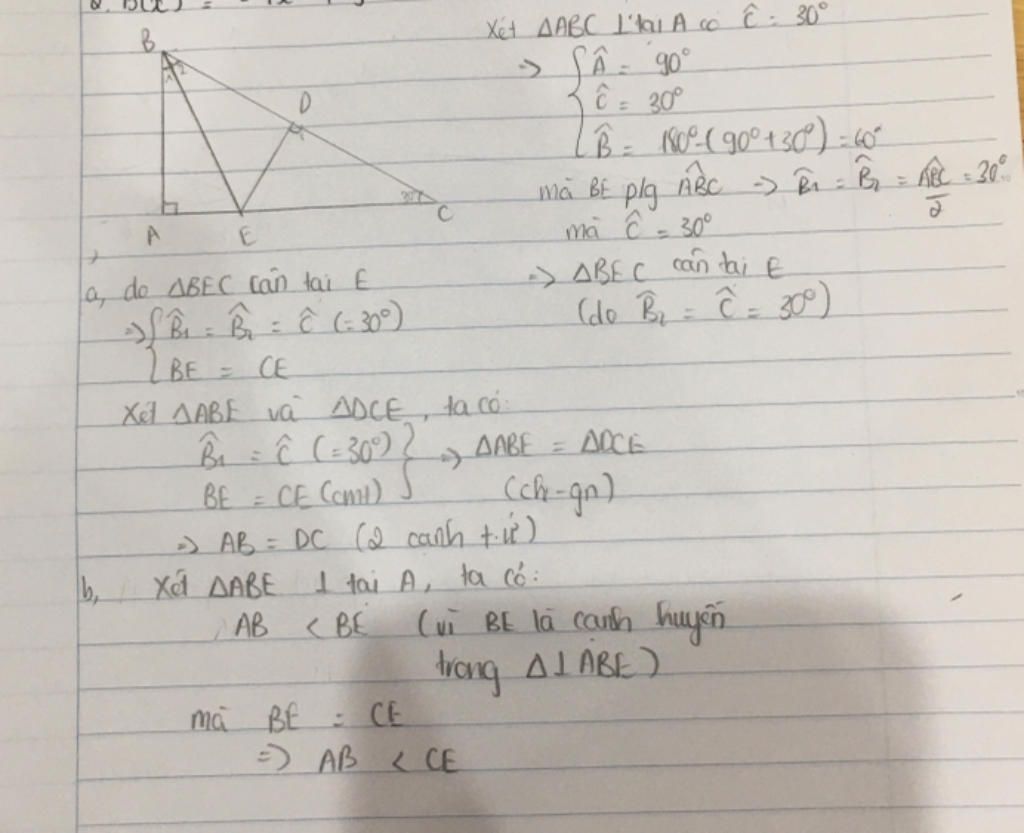 2. B(x) =
B
1 2
D
30°
C
A
E
Xét ΔABC ⊥ tại A có Ĉ = 30°
=> { Â = 90°
Ĉ = 30°
B̂ = 180°-(90°+30°) = 60°
mà BE p/g ABC => B̂1 = B̂2 = ABC/2 = 30°
mà Ĉ = 30°
=> ΔBEC cân tại E
(do B̂2 = Ĉ = 30°)
a, do ΔBEC cân tại E
=> { B̂1 = B̂2 = Ĉ (=30°)
BE = CE
Xét ΔABE và ΔDCE, ta có:
B̂1 = Ĉ (=30°) } => ΔABE = ΔDCE
BE = CE (cmt) (ch-gn)
=> AB = DC (2 cạnh t.ứ)
b, Xét ΔABE ⊥ tại A, ta có:
AB < BE (vì BE là cạnh huyền
trong Δ⊥ ABE)
mà BE = CE
=> AB < CE